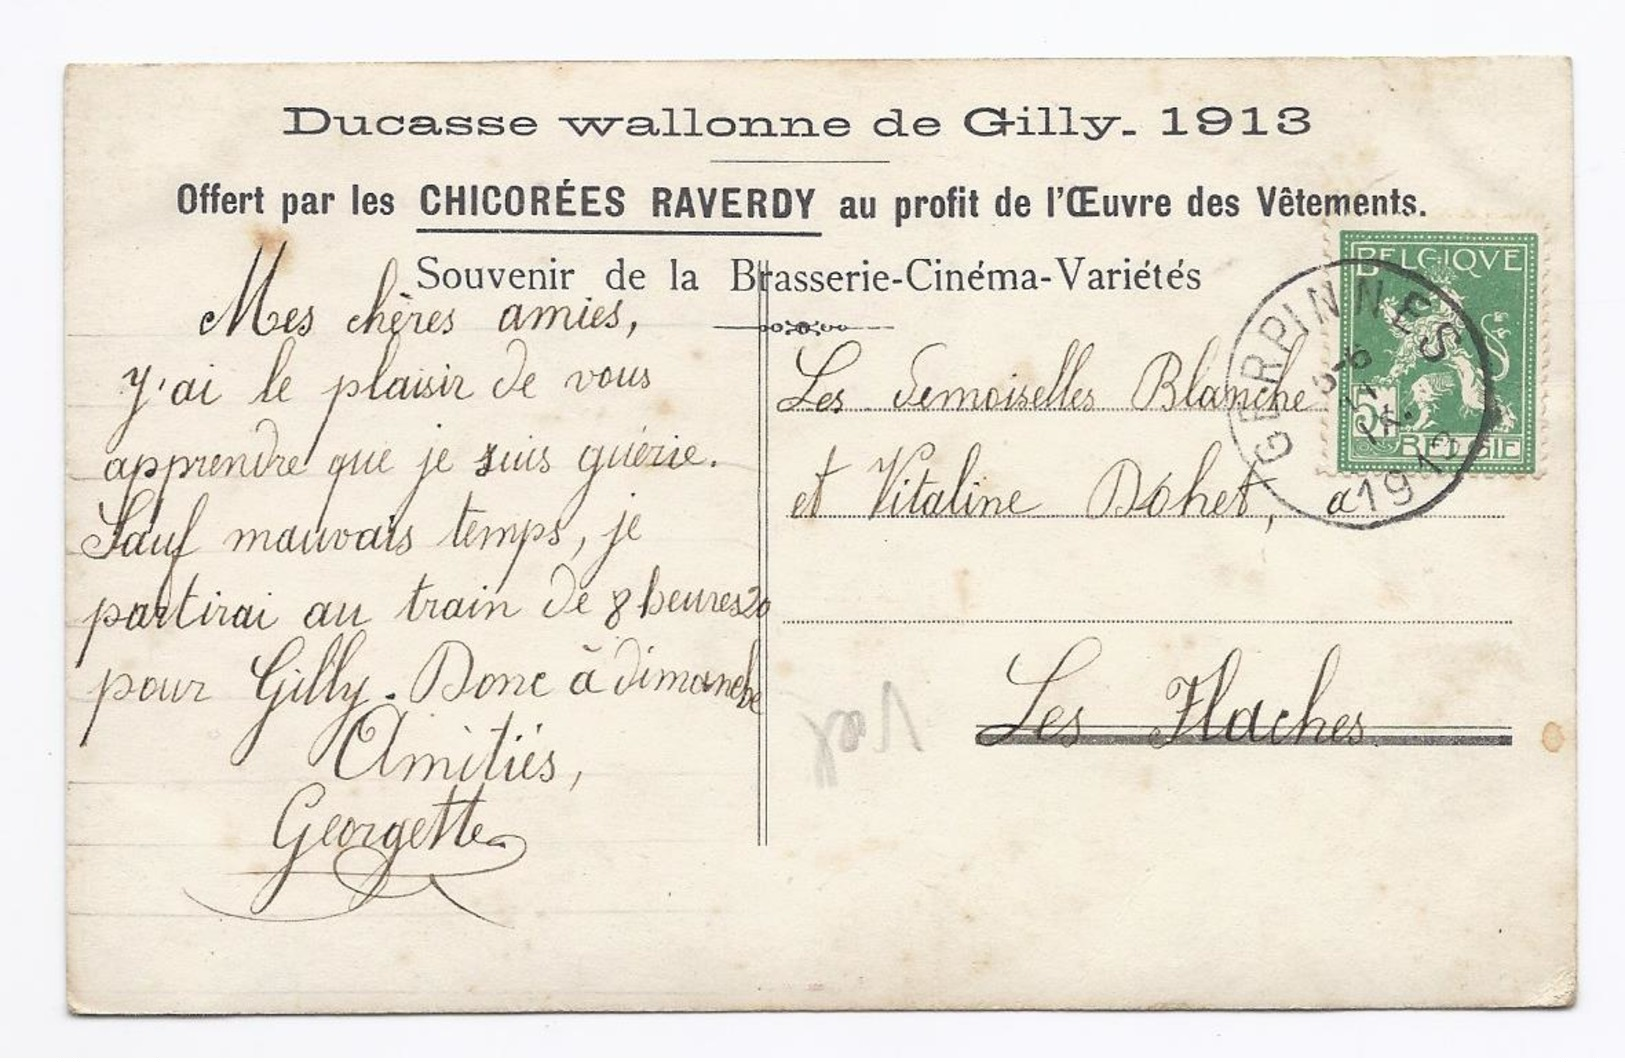 Ducasse wallonne de Gilly. 1913
Offert par les CHICORÉES RAVERDY au profit de l'Œuvre des Vêtements.
Souvenir de la Brasserie-Cinéma-Variétés
Mes chères amies,
y'ai le plaisir de vous
apprendre que je suis guérie.
Sauf mauvais temps, je
partirai au train de 8 heures 20
pour Gilly. Donc à dimanche
Amitiés,
Georgette
Les Demoiselles Blanche
et Vitaline Dohet, a
Les Flaches
BELGIQVE
5
BELGIE
GERPINNES
1913